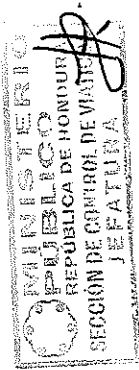 MINISTERIO
PÚBLICO
REPÚBLICA DE HONDUR
SECCIÓN DE CONTROL DE
JEFATURA